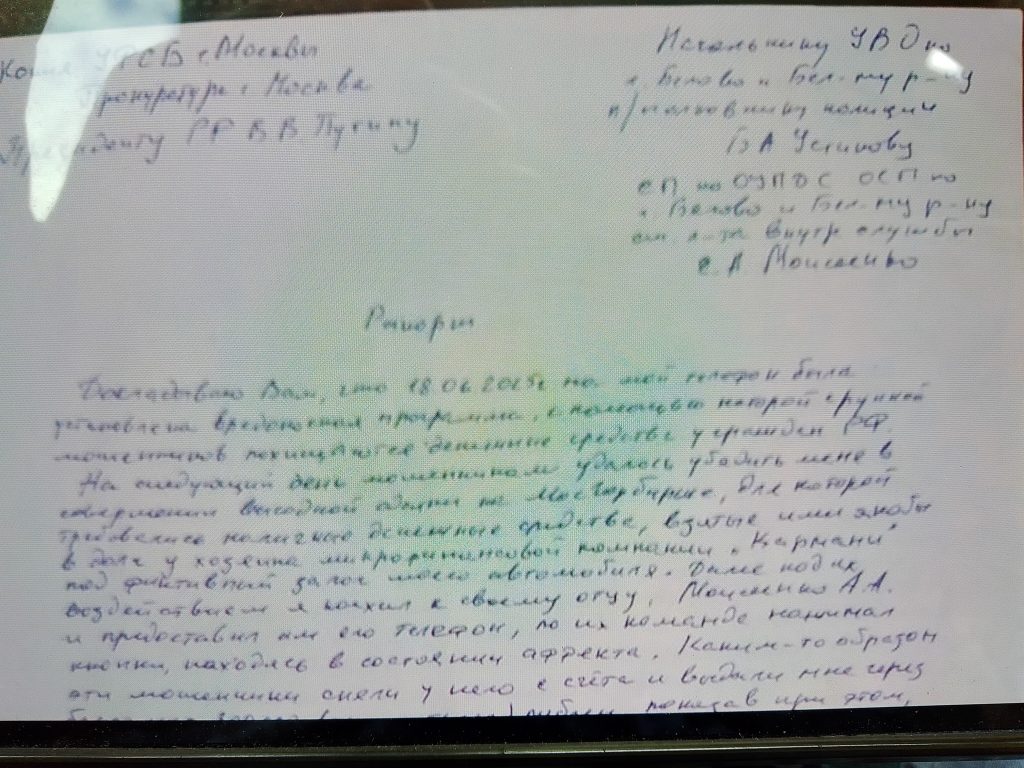 Копия УФСБ г. Москвы
Прокуратура г. Москва
Президенту РФ В.В. Путину
Начальнику УВД по
г. Белово и Бел-му р-ну
п/полковнику полиции
Б А Устинову
СП по ОУПДС ОСП по
г. Белово и Бел-му р-ну
ст. л-та внутр службы
С. А. Моисеенко
Рапорт
Докладываю Вам, что 18.06.2025г на мой телефон была
установлена вредоносная программа, с помощью которой группой
мошенников похищаются денежные средства у граждан РФ.
На следующий день мошенникам удалось убедить меня в
совершении выгодной сделки на Мосгорбирже, для которой
требовались наличные денежные средства, взятые ими якобы
в долг у хозяина микрофинансовой компании „Кармани"
под фиктивный залог моего автомобиля. Далее под их
воздействием я поехал к своему отцу, Моисеенко А.А.
и предоставил им его телефон, по их команде нажимал
кнопки, находясь в состоянии аффекта. Каким-то образом
эти мошенники сняли у него с счёта и выдали мне через
рублей показав при этом,